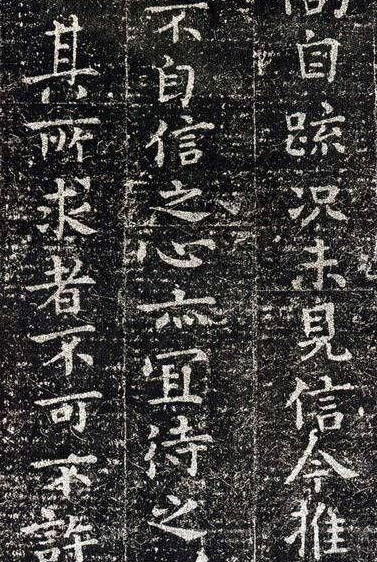 尚自疏况未見信今推
不自信之心亦宜待之
其所求者不可不許